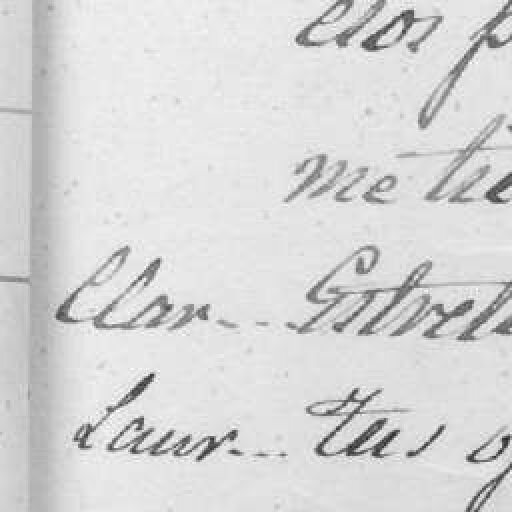 elos p
me tie
Clar... Estrell
Laur... Tus o